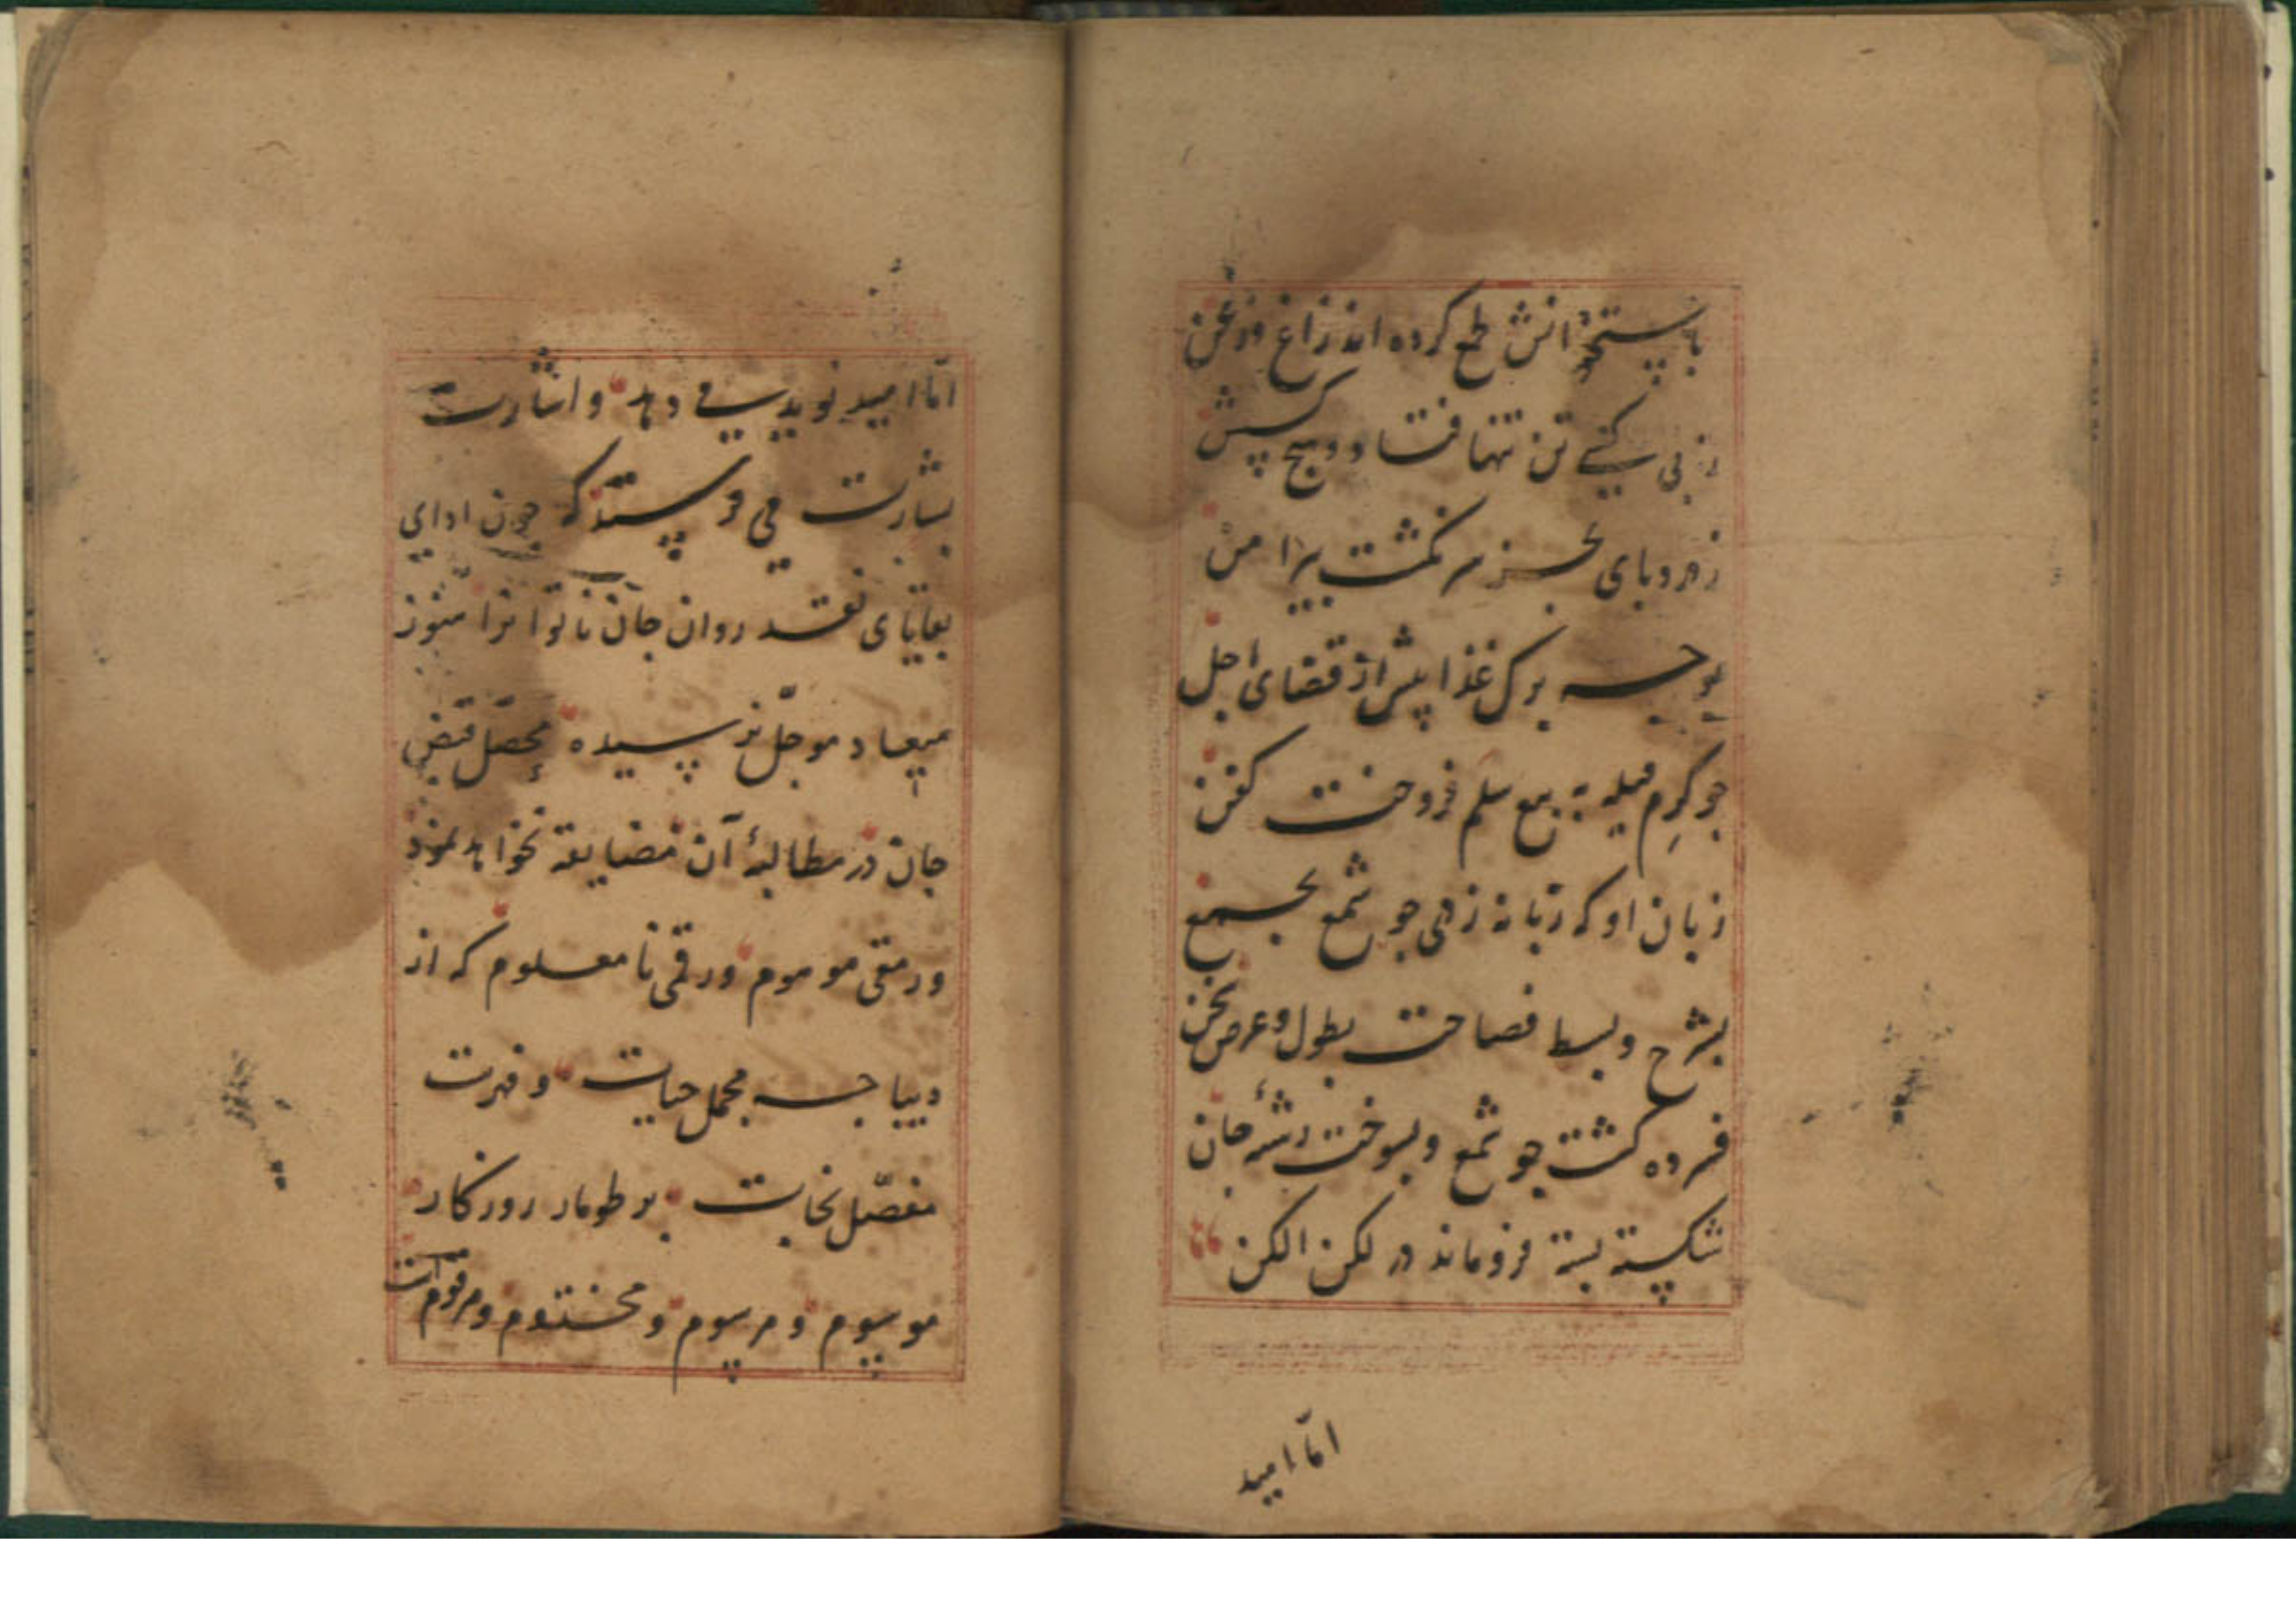 باستخوانش طمع کرده اند زاغ و زغن
ز بی کسی تن تنها فتاد و هیچ کسش
ز مرد بای بجز سر نکشت بیرامن
بوجه برک غذا پیش از قضای اجل
جو کرم فیله به بیع سلم فروخت کفن
زبان او که زبانه زدی جو شمع بجمع
بشرح و بسط فصاحت بطول و عرض سخن
فسرده کشت جو شمع و بسوخت رشتهٔ جان
شکسته بسته فروماند در لکن الکن
امّا امید
امّا امید نویدی می دهد و اشارت
بشارت می فرستد که جون ادای
بقایای نقد روان جان ناتوانرا هنوز
میعاد موجّل نرسیده محصّل قبض
جان در مطالبهٔ آن مضایقه نخواهد نمود
و رمقی موهوم و رقمی نامعلوم که از
دیباجه مجمل حیات و فهرست
مفصّل نجات بر طومار روزکار
موسوم و مرسوم و مختوم و مرقومست